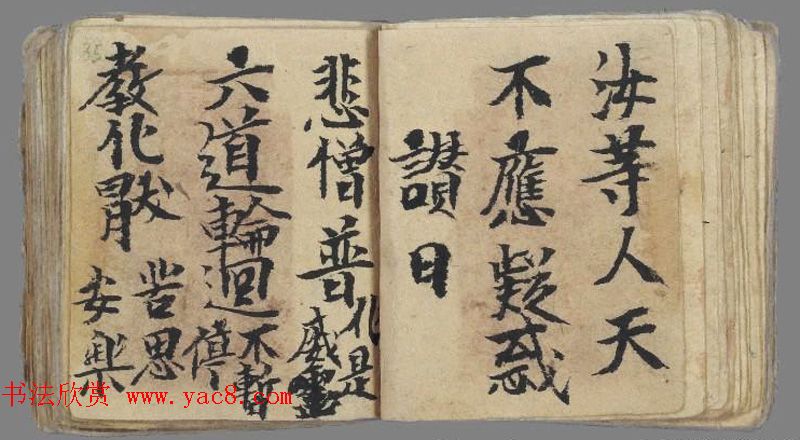 汝等人天
不應疑惑
讚曰
悲憎普化是威靈
六道輪迴不暫停
教化猒苦思安樂
35
书法欣赏 www.yac8.com